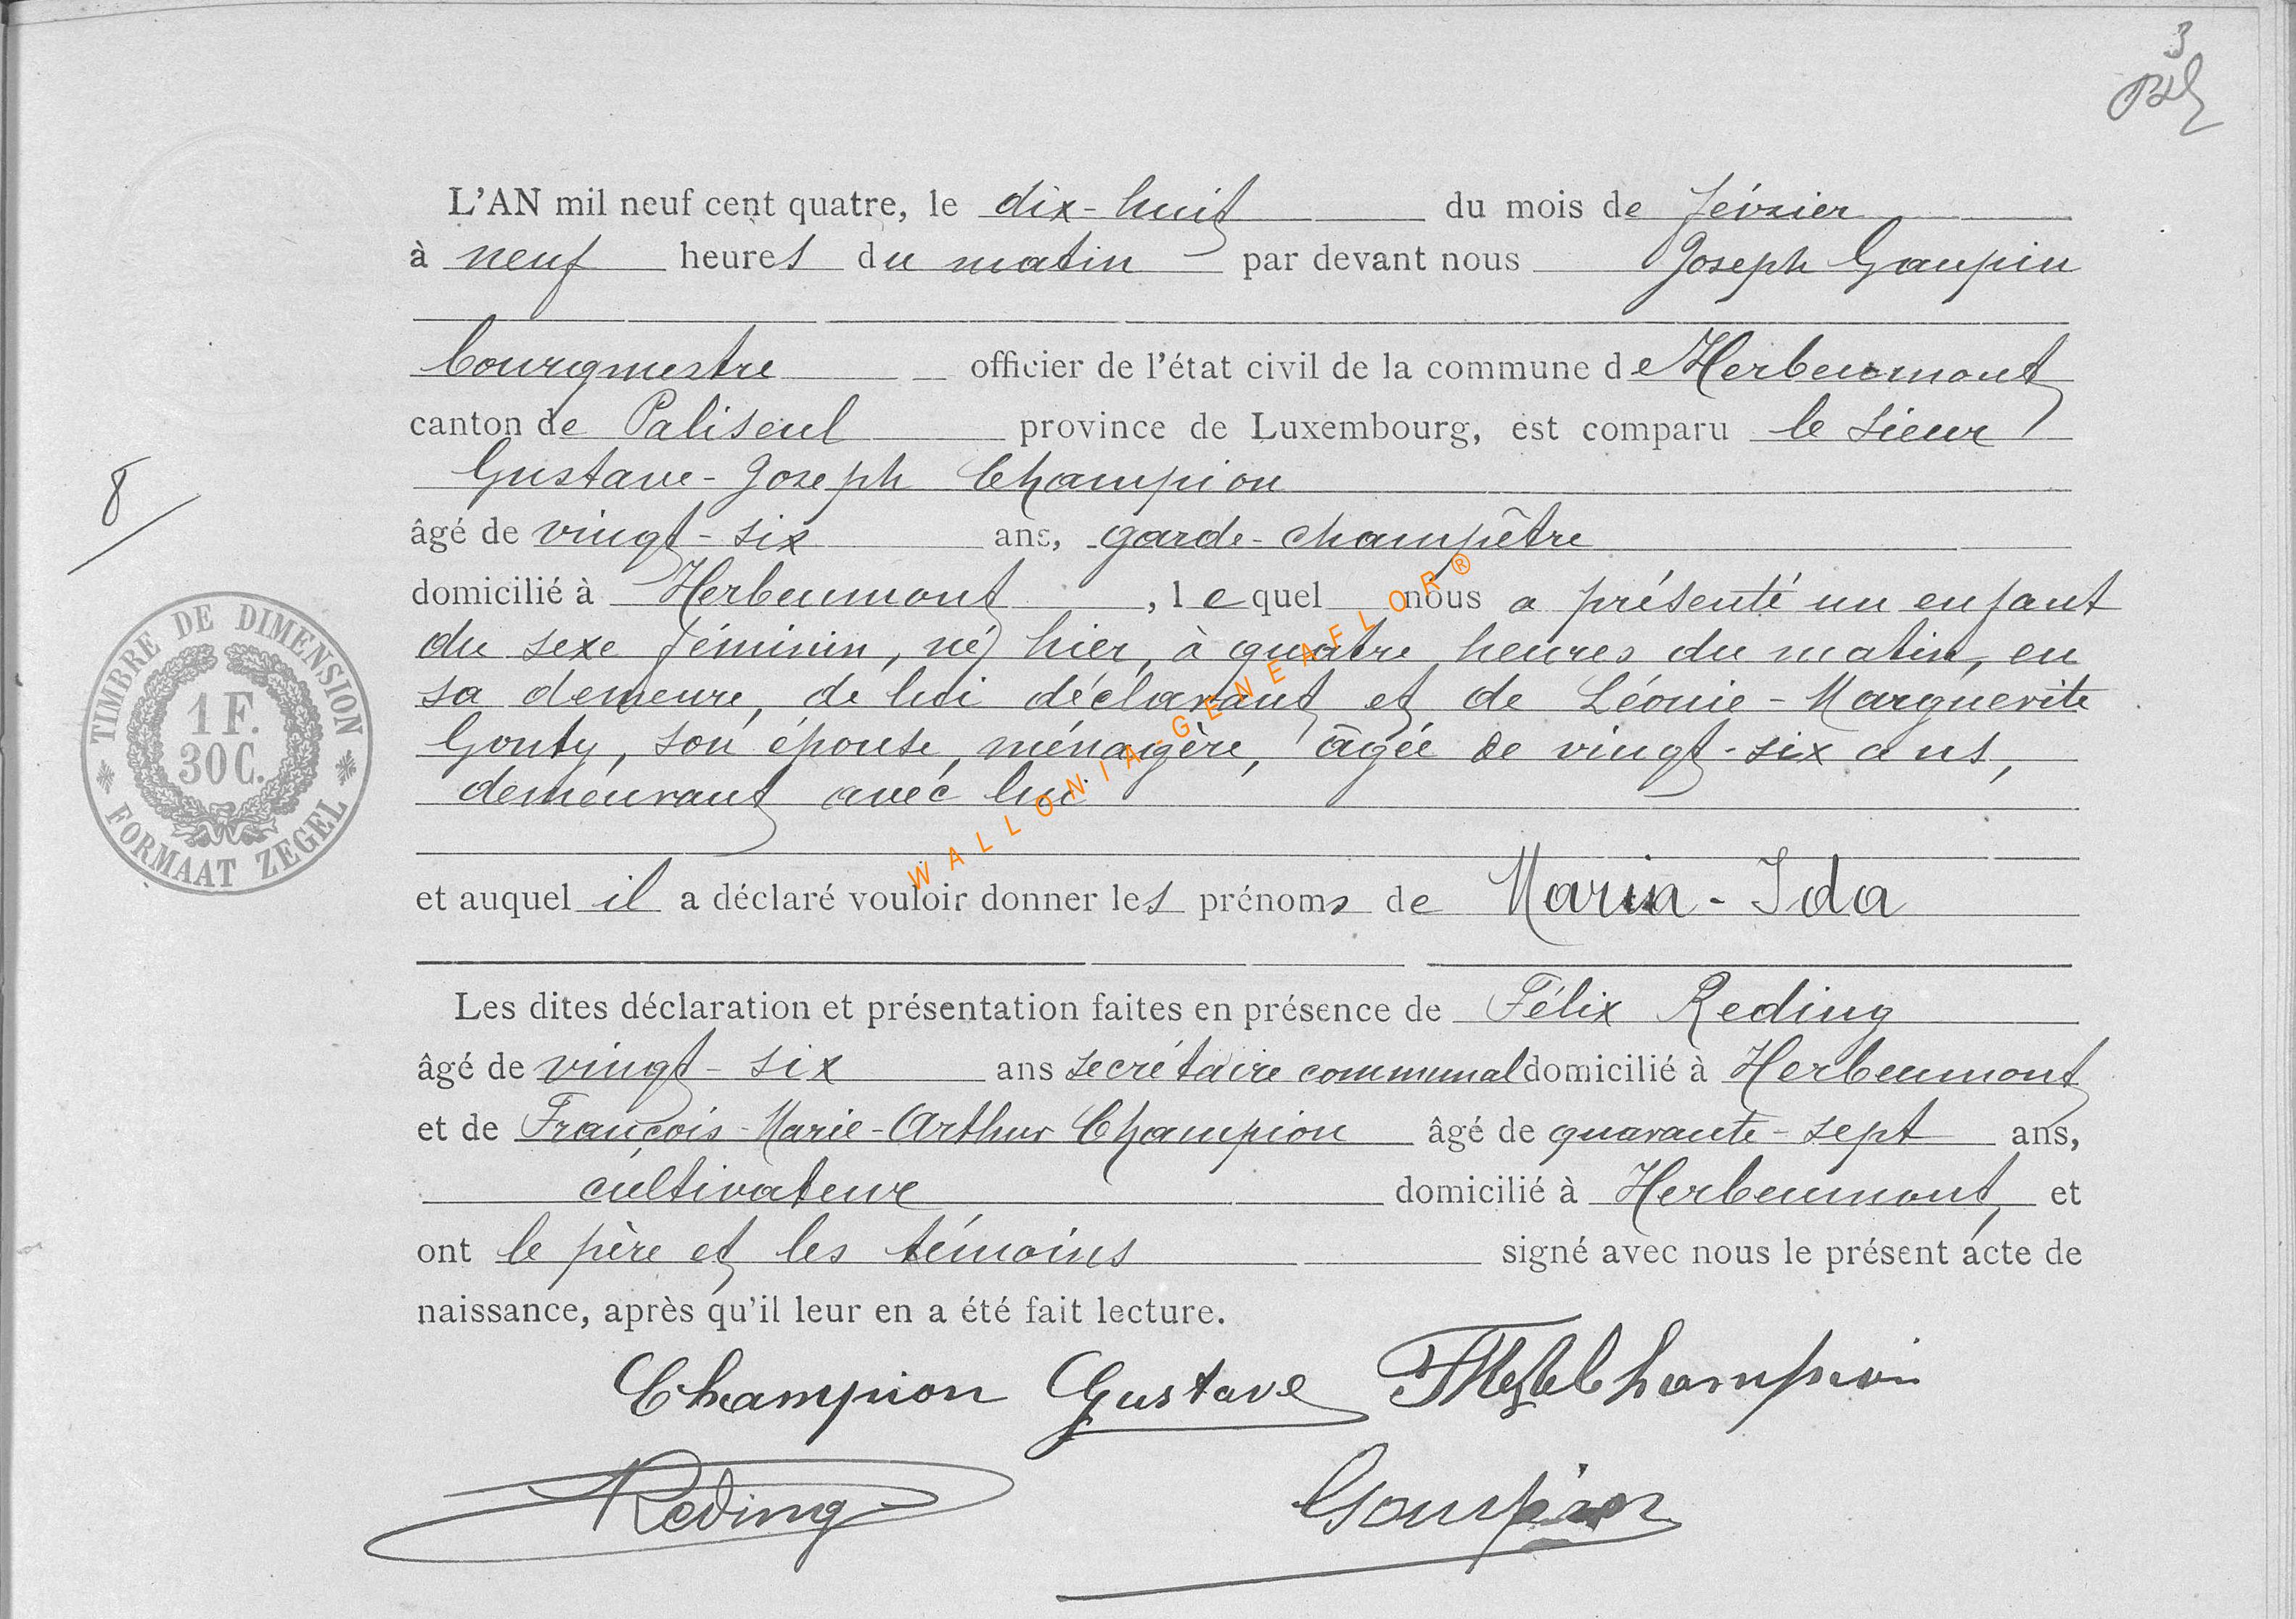 3
L'AN mil neuf cent quatre, le dix-huit du mois de février
à neuf heures du matin par devant nous Joseph Gaupin
bourgmestre officier de l'état civil de la commune de Herbeumont
canton de Paliseul province de Luxembourg, est comparu le sieur
Gustave-Joseph Champion
âgé de vingt-six ans, garde-champêtre
domicilié à Herbeumont, lequel nous a présenté un enfant
du sexe féminin, né hier, à quatre heures du matin, en
sa demeure, de lui déclarant et de Léonie-Marguerite
Gouty, son épouse, ménagère, âgée de vingt-six ans,
demeurant avec lui
et auquel il a déclaré vouloir donner les prénoms de Maria-Ida
Les dites déclaration et présentation faites en présence de Félix Reding
âgé de vingt-six ans secrétaire communal domicilié à Herbeumont
et de François-Marie-Arthur Champion âgé de quarante-sept ans,
cultivateur domicilié à Herbeumont, et
ont le père et les témoins signé avec nous le présent acte de
naissance, après qu'il leur en a été fait lecture.
Champion Gustave Champion
Reding Gaupin
8
TIMBRE DE DIMENSION
1 F.
30 C.
FORMAAT ZEGEL
WALLONIA-GENEAFLOR®